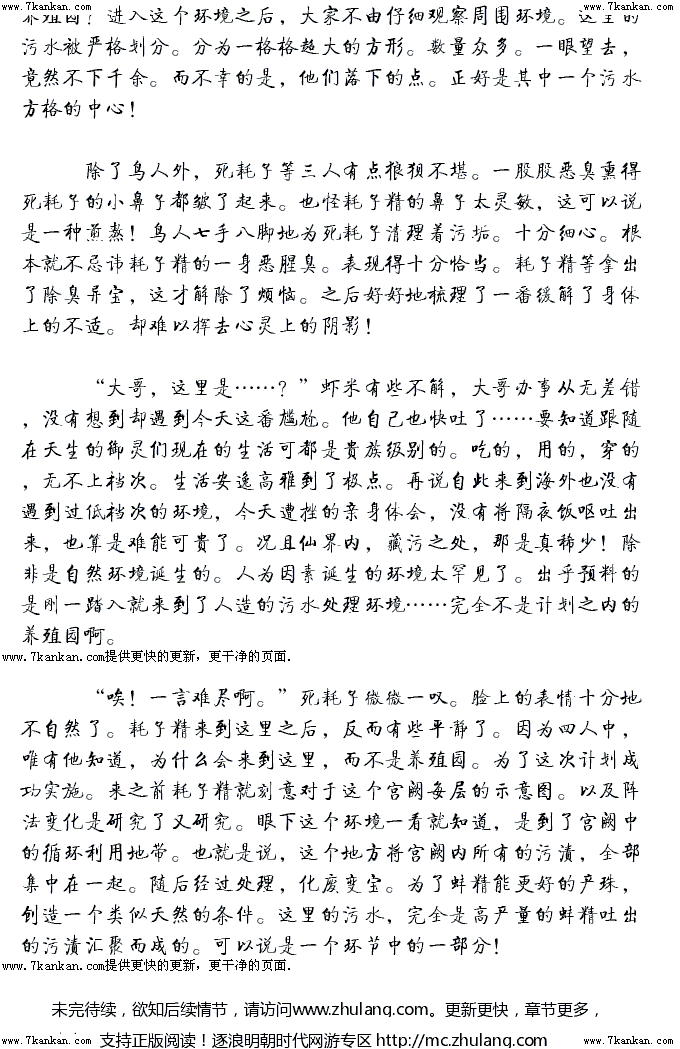 养殖园？进入这个环境之后，大家不由仔细观察周围环境。这里的
www.7kankan.com www.7kankan.com
污水被严格划分。分为一格格超大的方形。数量众多。一眼望去，
竟然不下千余。而不幸的是，他们落下的点。正好是其中一个污水
方格的中心！
除了鸟人外，死耗子等三人有点狼狈不堪。一股股恶臭熏得
死耗子的小鼻子都皱了起来。也怪耗子精的鼻子太灵敏，这可以说
是一种煎熬！鸟人七手八脚地为死耗子清理着污垢。十分细心。根
本就不忌讳耗子精的一身恶腥臭。表现得十分恰当。耗子精等拿出
了除臭异宝，这才解除了烦恼。之后好好地梳理了一番缓解了身体
上的不适。却难以挥去心灵上的阴影！
“大哥，这里是……？”虾米有些不解，大哥办事从无差错
，没有想到却遇到今天这番尴尬。他自己也快吐了……要知道跟随
在天生的御灵们现在的生活可都是贵族级别的。吃的，用的，穿的
，无不上档次。生活安逸高雅到了极点。再说自此来到海外也没有
遇到过低档次的环境，今天遭挫的亲身体会，没有将隔夜饭呕吐出
来，也算是难能可贵了。况且仙界内，藏污之处，那是真稀少！除
非是自然环境诞生的。人为因素诞生的环境太罕见了。出乎预料的
是刚一踏入就来到了人造的污水处理环境……完全不是计划之内的
养殖园啊。
www.7kankan.com提供更快的更新，更干净的页面.
“唉！一言难尽啊。”死耗子微微一叹。脸上的表情十分地
不自然了。耗子精来到这里之后，反而有些平静了。因为四人中，
唯有他知道，为什么会来到这里，而不是养殖园。为了这次计划成
功实施。来之前耗子精就刻意对于这个宫阙每层的示意图。以及阵
法变化是研究了又研究。眼下这个环境一看就知道，是到了宫阙中
的循环利用地带。也就是说，这个地方将宫阙内所有的污渍，全部
集中在一起。随后经过处理，化废变宝。为了蚌精能更好的产珠，
创造一个类似天然的条件。这里的污水，完全是高产量的蚌精吐出
的污渍汇聚而成的。可以说是一个环节中的一部分！
www.7kankan.com提供更快的更新，更干净的页面.
未完待续，欲知后续情节，请访问www.zhulang.com。更新更快，章节更多，
支持正版阅读！逐浪明朝时代网游专区 http://mc.zhulang.com
www.7kankan.com www.7kankan.com